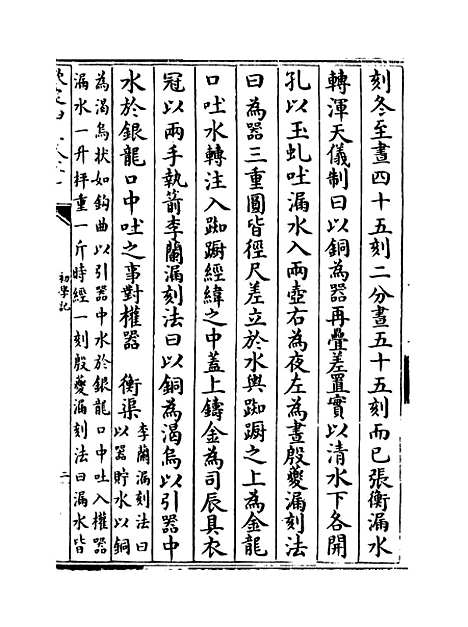 刻冬至晝四十五刻二分晝五十五刻而已張衡漏水
轉渾天儀制曰以銅為器再疊差置實以清水下各開
孔以玉虬吐漏水入兩壺右為夜左為晝殷夔漏刻法
曰為器三重圓皆徑尺差立於水輿踟蹰之上為金龍
口吐水轉注入踟蹰經緯之中蓋上鑄金為司辰具衣
冠以兩手執箭李蘭漏刻法曰以銅為渴烏以引器中
水於銀龍口中吐之事對權器 衡渠李蘭漏刻法曰
以器貯水以銅
為渴烏狀如鈎曲以引器中水於銀龍口中吐入權器
漏水一升秤重一斤時經一刻殷夔漏刻法曰漏水皆
初學記
二